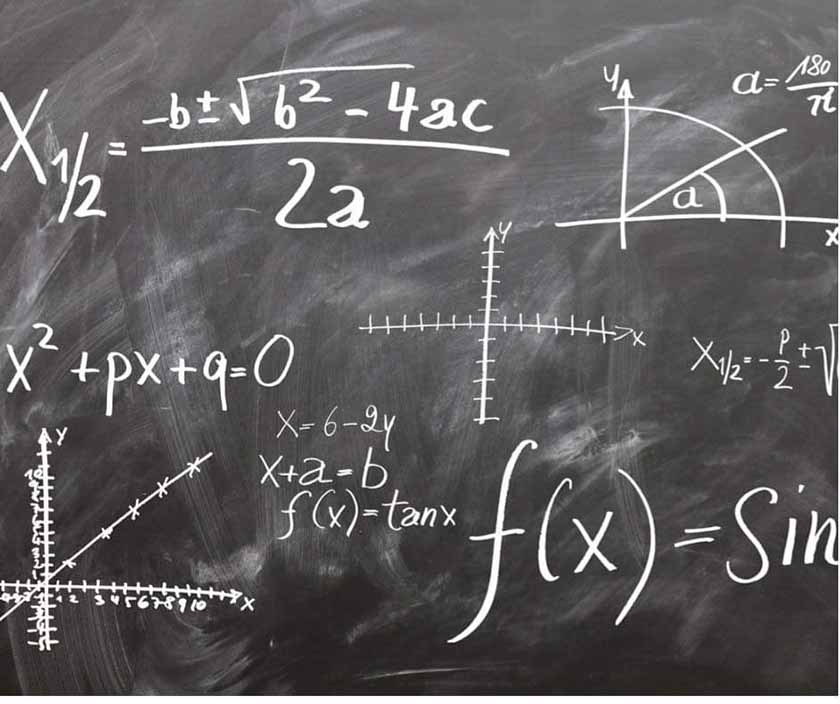 X₁/₂ = (-b ± √(b² - 4ac)) / 2a
y
a = 180/π
a
x
y
x
x² + px + q = 0
X₁/₂ = -p/2 ± √
x = 6 - 2y
x + a = b
f(x) = tanx
f(x) = Sin
y
1 2 3 4 5 6 7 8 9 10
x